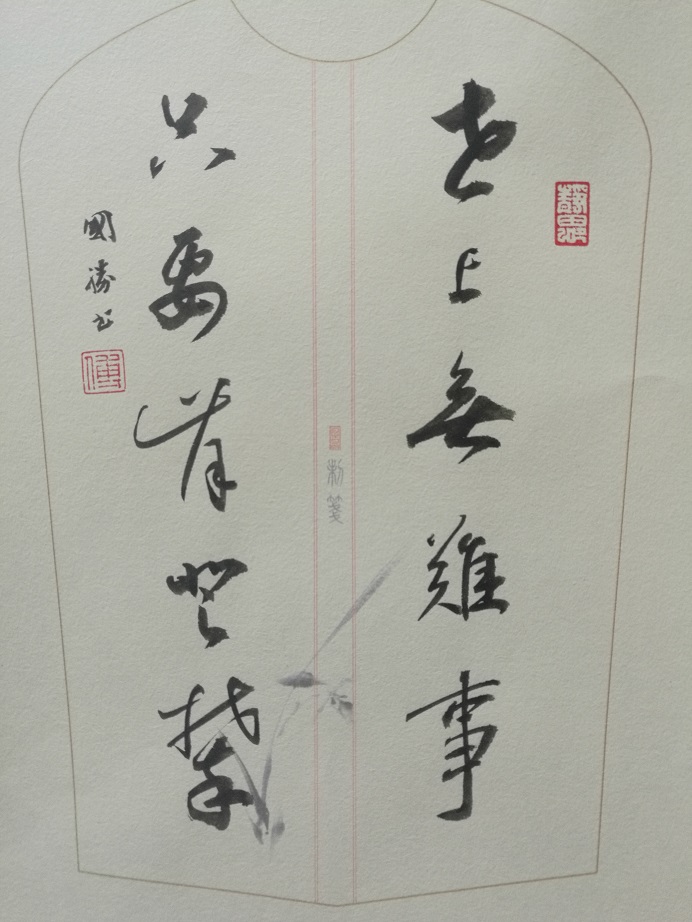 世上無難事
只要肯登攀
國勝书
制箋